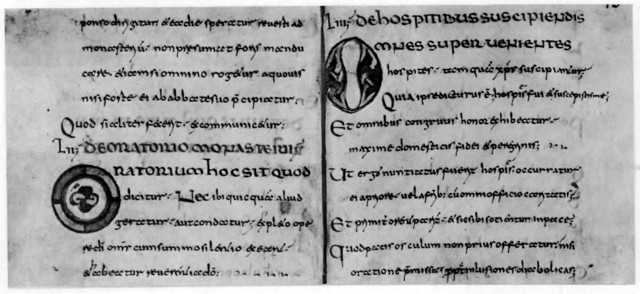 ponso dirigitur & ea die speratur reverti ad
monasteriū· non presumat foris mandu
care· etiam si omnino rogetur aquovis
nisi forte ei ab abbate suo p̄cipiatur·
Quod si aliter fecerit· excommunicetur·
Lii· DE ORATORIO MONASTERII
ORATORIUM HOC SIT QUOD
dicitur· Nec ibi quicquam aliud
geratur aut condatur· expleto ope
re di omnes cum summo silentio exeant·
& habeatur reverentia dō·
Liii· DE HOSPITIBUS SUSCIPIENDIS
OMNES SUPERVENIENTES
hospites· tamquā xps suscipiantur·
Quia ipse dicturus ē hospis fui & suscepistis me·
Et omnibus congruus honor exhibeatur·
maxime domesticis fidei & peregrinis·
Ut ergo nuntiatus fuerit hospis· occurratur
ei apriore vel a frib; cum omni officio caritatis·
Et primitus orent pariter· & sic sibi socientur in pace·
Quod pacis osculum non prius offeratur nisi
oratione p̄missa· ppt inlusiones diabolicas·